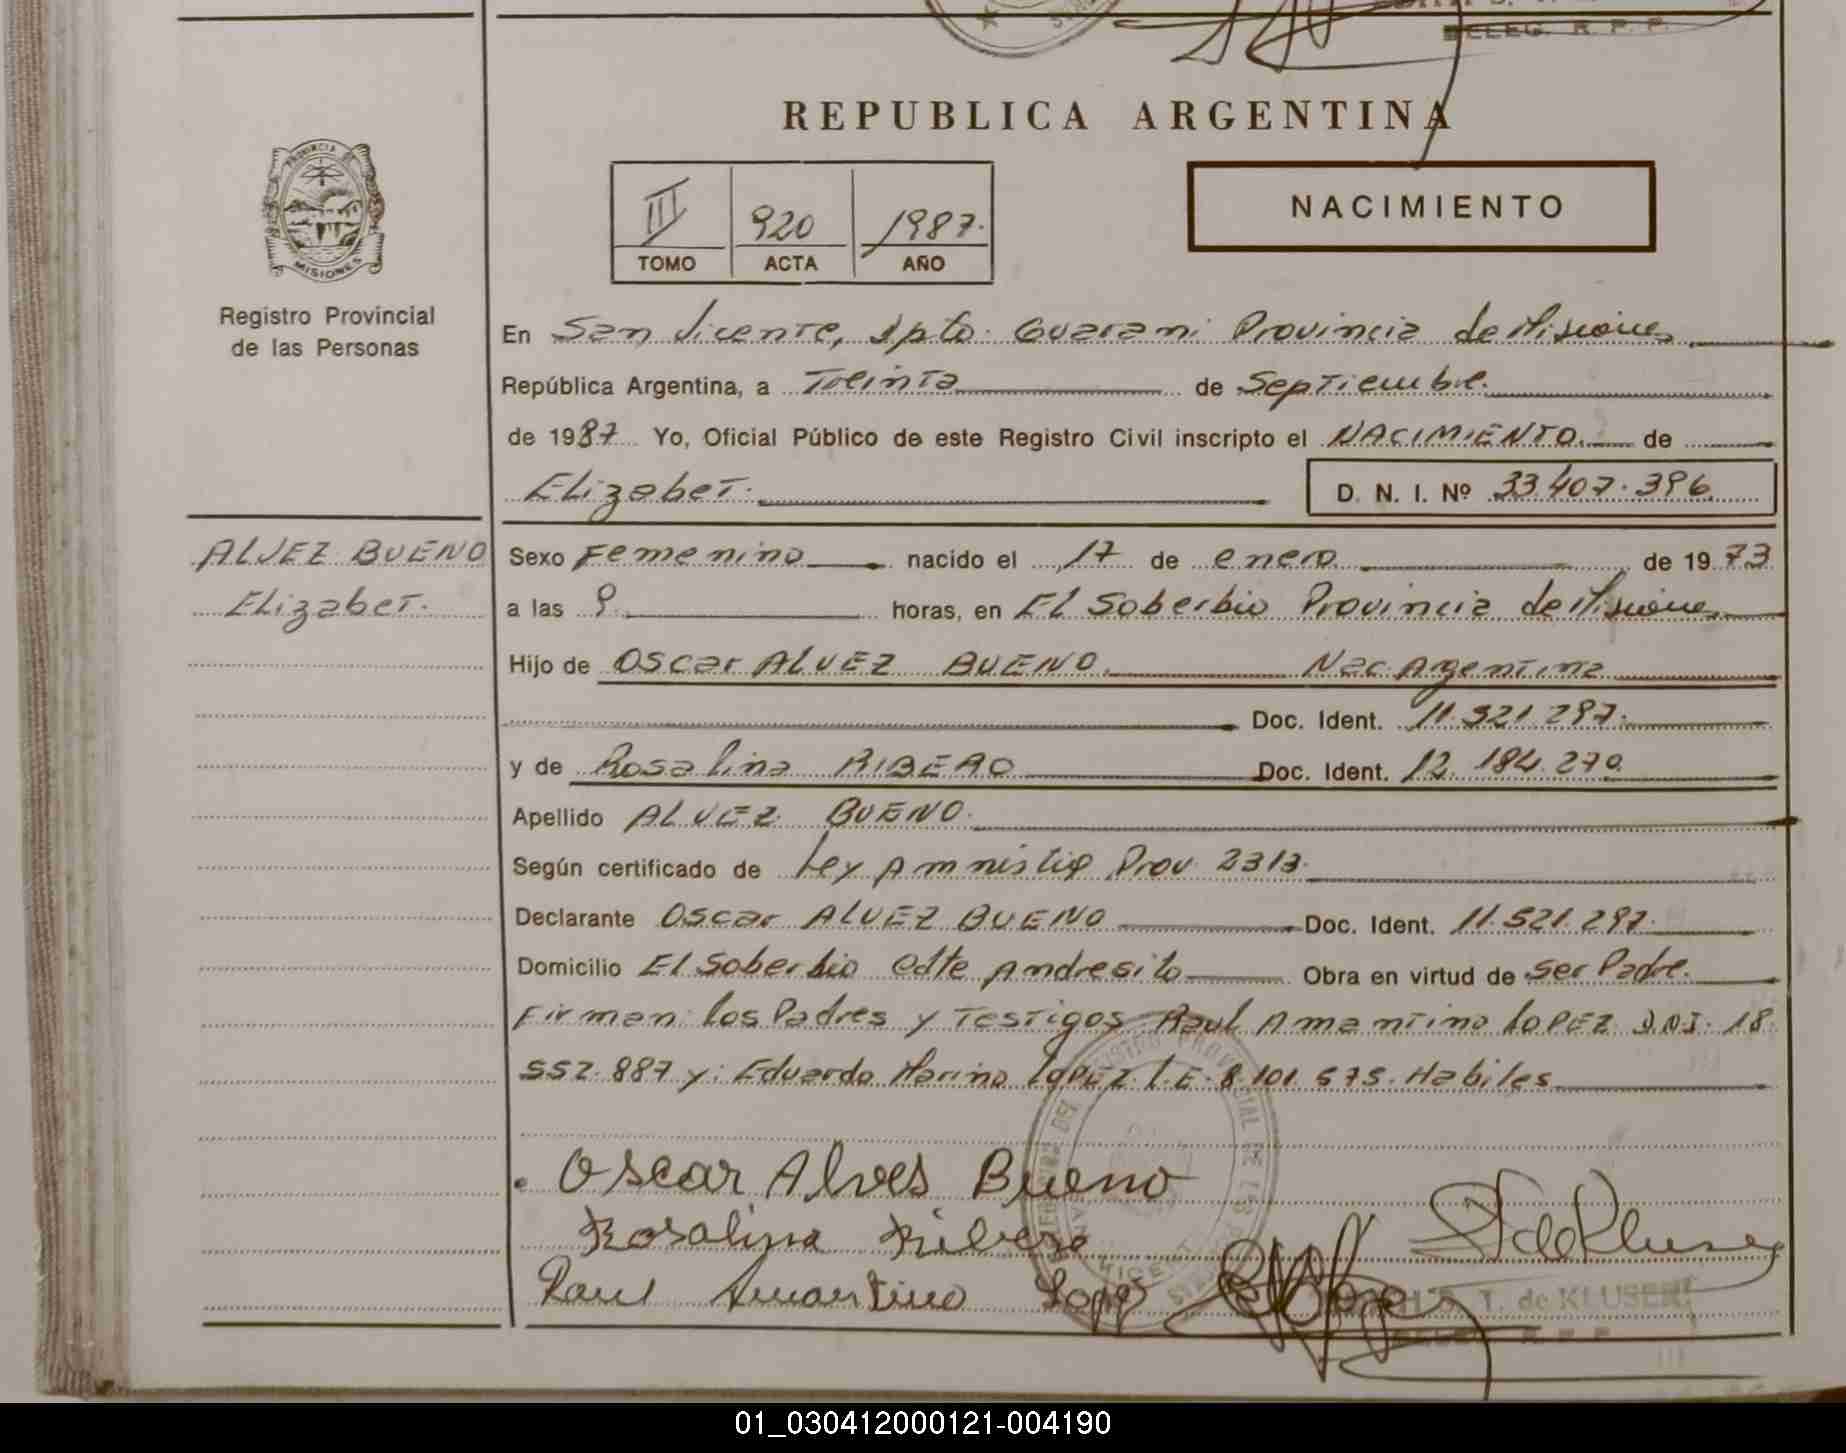 DELEG. R. P. P.
REPUBLICA ARGENTINA
PROVINCIA DE
MISIONES
III 920 1987.
TOMO ACTA AÑO
NACIMIENTO
Registro Provincial
de las Personas
En San Vicente, Dpto. Guarani Provincia de Misiones
República Argentina, a Treinta de Septiembre.
de 1987 Yo, Oficial Público de este Registro Civil inscripto el NACIMIENTO. de
Elizabet. D. N. I. Nº 33.407.396
ALVEZ BUENO
Elizabet.
Sexo Femenino nacido el 17 de enero de 1973
a las 9 horas, en El Soberbio Provincia de Misiones
Hijo de Oscar ALVEZ BUENO. Nac. Argentina
Doc. Ident. 11.521.297.
y de Rosalina RIBERO Doc. Ident. 12.184.270.
Apellido ALVEZ BUENO.
Según certificado de Ley Amnistia Prov. 2313.
Declarante Oscar ALVEZ BUENO Doc. Ident. 11.521.297.
Domicilio El Soberbio Cdte Andresito Obra en virtud de ser Padre.
Firman: los Padres y Testigos Raul Amantino LOPEZ D.N.I. 18.
552.887 y: Eduardo Marino LOPEZ L.E. 8.101.575. Habiles
Oscar Alves Bueno
Rosalina Ribero
Raul Amantino Lopez
T. de KLUSENER
01_030412000121-004190